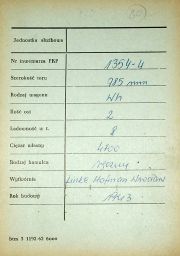 Jednostka służbowa
Nr inwentarza PKP 1354-4
Szerokość toru 785 mm
Rodzaj wagonu Wh
Ilość osi 2
Ładowność w t. 8
Ciężar własny 4100
Rodzaj hamulca
Wytwórnia Linke Hofman Wrocław
Rok budowy